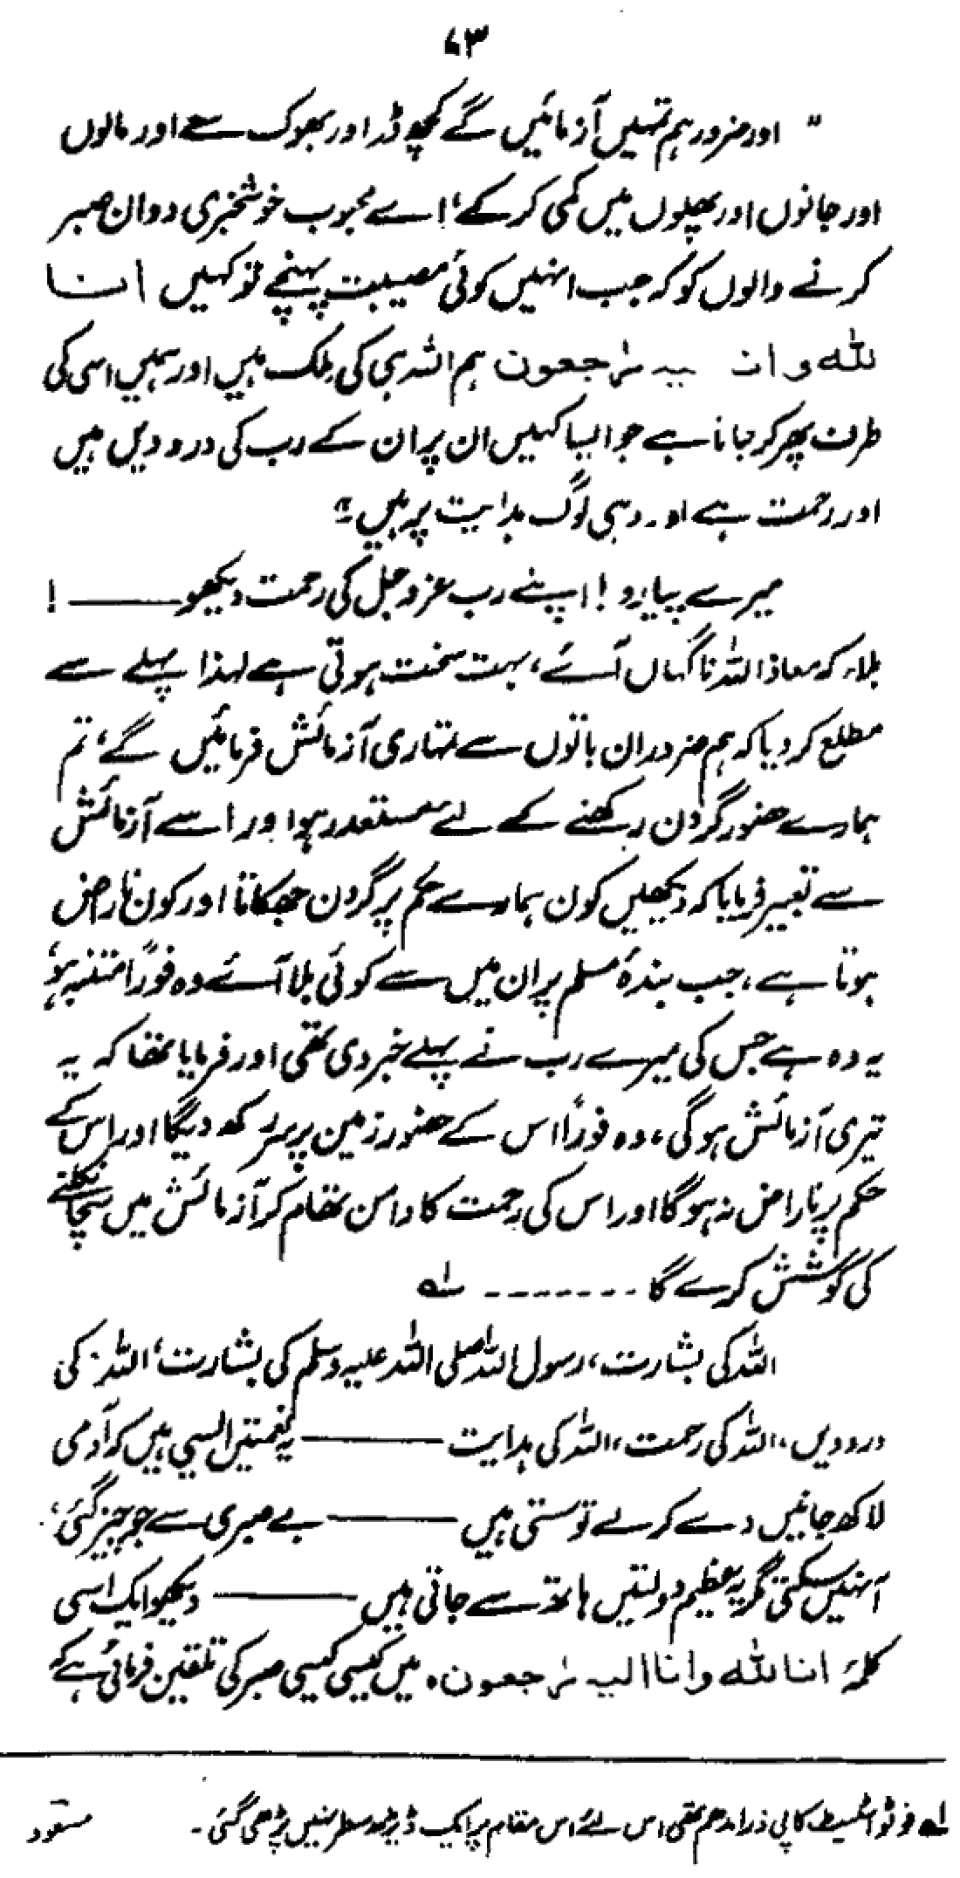 ۷۳
" اور ضرور ہم تمہیں آزمائیں گے کچھ ڈر اور بھوک سے اور مالوں
اور جانوں اور پھلوں میں کمی کر کے، اے محبوب خوشخبری دو ان صبر
کرنے والوں کو کہ جب انہیں کوئی مصیبت پہنچے تو کہیں انا
للہ وان یہ رٰجعون ہم اللہ ہی کی ملک ہیں اور ہمیں اسی کی
طرف پھر کر جانا ہے جو ایسا کہیں ان پر ان کے رب کی درودیں ہیں
اور رحمت ہے اور وہی لوگ ہدایت پر ہیں۔"
میرے پیارو! اپنے رب عزوجل کی رحمت دیکھو ——— !
بلاء کہ معاذ اللہ ناگہاں آئے، بہت سخت ہوتی ہے لہذا پہلے سے
مطلع کر دیا کہ ہم ضرور ان باتوں سے تمہاری آزمائش فرمائیں گے، تم
ہمارے حضور گردن رکھنے کے لئے مستعد رہو اور اسے آزمائش
سے تعبیر فرمایا کہ دیکھیں کون ہمارے حکم پر گردن جھکاتا اور کون ناراض
ہوتا ہے، جب بندۂ مسلم پر ان میں سے کوئی بلا آئے وہ فوراً متنبہ ہو،
یہ وہ ہے جس کی میرے رب نے پہلے خبر دی تھی اور فرمایا تھا کہ یہ
تیری آزمائش ہوگی، وہ فوراً اس کے حضور زمین پر سر رکھ دیگا اور اس کے
حکم پر ناراض نہ ہوگا اور اس کی رحمت کا دامن تھام کر آزمائش میں سچا نکلنے
کی کوشش کرے گا ------- لہ
اللہ کی بشارت، رسول اللہ صلی اللہ علیہ وسلم کی بشارت، اللہ کی
درودیں، اللہ کی رحمت، اللہ کی ہدایت ——— یہ نعمتیں ایسی ہیں کہ آدمی
لاکھ جانیں دے کر لے تو سستی ہیں ——— بے صبری سے جو چیز گئی،
آ نہیں سکتی مگر یہ عظیم دولتیں ہاتھ سے جاتی ہیں ——— دیکھو ایک اسی
کلمۂ انا للہ وانا الیہ رٰجعون۔ میں کیسی کیسی صبر کی تلقین فرمائی ہے کہ
لہ فوٹو اسٹیٹ کاپی ذرا مدھم تھی اس لئے اس مقام پر ایک ڈیڑھ سطر نہیں پڑھی گئی۔ مسعود